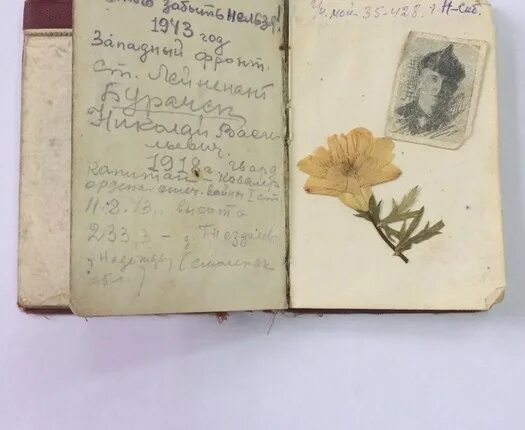 забыть нельзя!
1943 год
Западный фронт.
ст. Лейненант
Николай Васи-
льевич
1918 г. гвард
капитан - кавалер
ордена отеч. войны I ст.
11.2.43. высота
233,3 - д. Гнездилово
у Надежды (смоленск
обл.)
Уч. мой - 35-428, г. Н-Сиб.